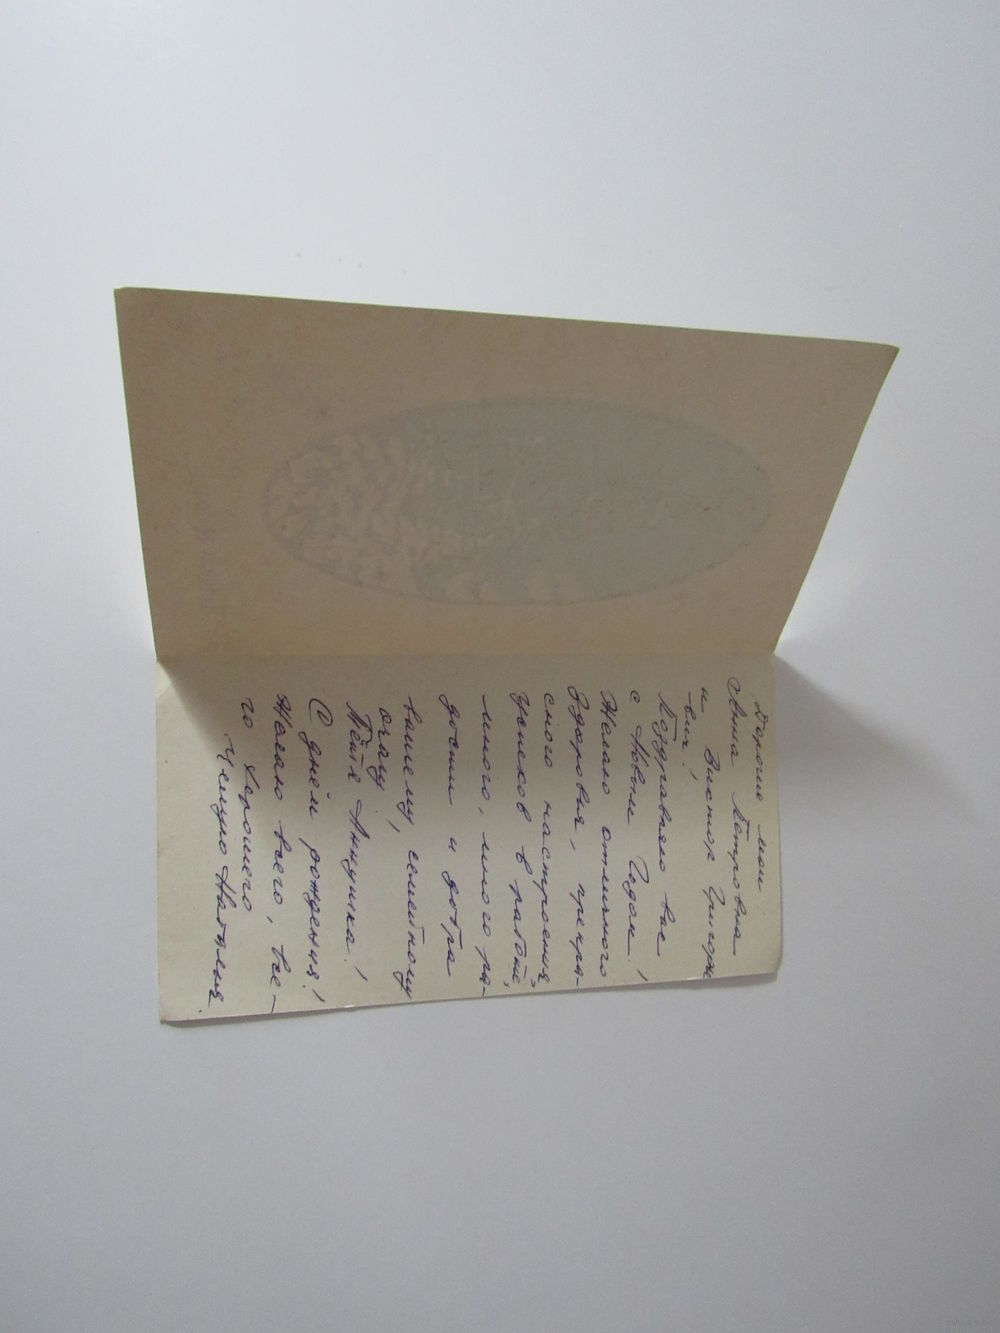 Дорогие мои
Анна Петровна
и Виктор Григорь
евич!
Поздравляю вас
с Новым Годом!
Желаю отличного
здоровья, прекра-
сного настроения,
успехов в работе,
много, много ра-
дости и добра
вашему, семейному
очагу
Тётя Аннушка!
С днём рождения!
Желаю всего, все-
го хорошего
Наталия.